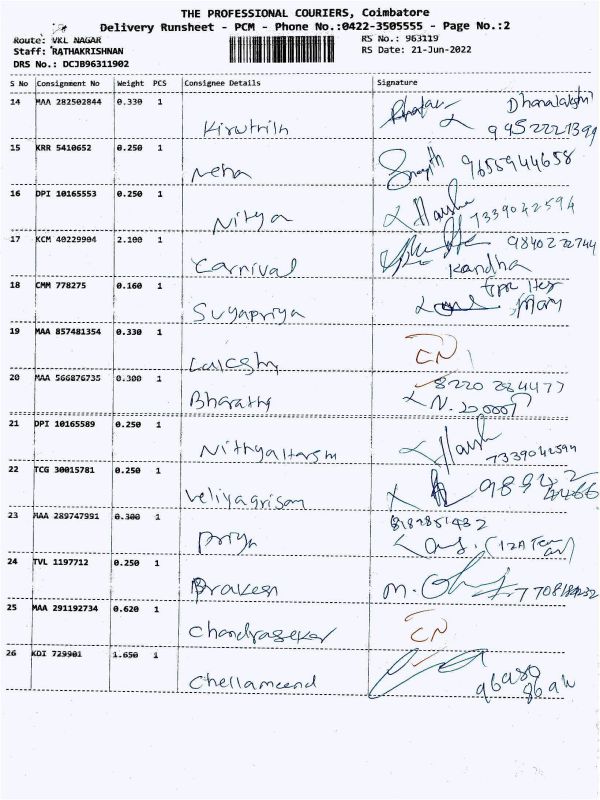 THE PROFESSIONAL COURIERS, Coimbatore
Delivery Runsheet - PCM - Phone No.:0422-3505555 - Page No.:2
Route: VKL NAGAR
RS No.: 963119
Staff: RATHAKRISHNAN
RS Date: 21-Jun-2022
DRS No.: DCJB96311902
S No Consignment No Weight PCS Consignee Details Signature
14 MAA 282502844 0.330 1 Dhanalakshmi
9952221399
15 KRR 5410652 0.250 1 Neha 9655944658
16 DPI 10165553 0.250 1 Nitya Harsha 7339042594
17 KCM 40229904 2.100 1 Carnival 9840272744
Kandha
18 CMM 778275 0.160 1 Suyapriya
19 MAA 857481354 0.330 1 CN
20 MAA 566876735 0.300 1 Bharathi 8220784477
21 DPI 10165589 0.250 1 Nithyaharsh Harsh 7339042594
22 TCG 30015781 0.250 1 Veliyagrisam
23 MAA 289747991 0.300 1 Priya
24 TVL 1197712 0.250 1 Brakesh
25 MAA 291192734 0.620 1 Chandrasekar CN
26 KDI 729901 1.650 1 Chellameend